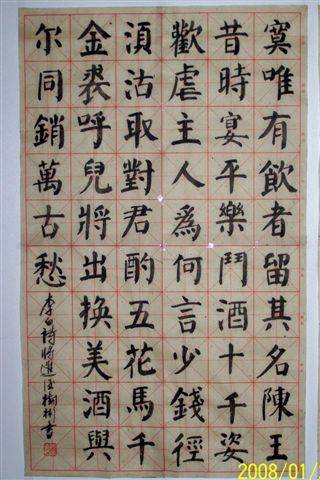 寞唯有飲者留其名陳王
昔時宴平樂鬥酒十千姿
歡虐主人爲何言少錢徑
湏沽取對君酌五花馬千
金裘呼兒將出換美酒與
尔同銷萬古愁
李白詩將進 樹彬書
2008/01/